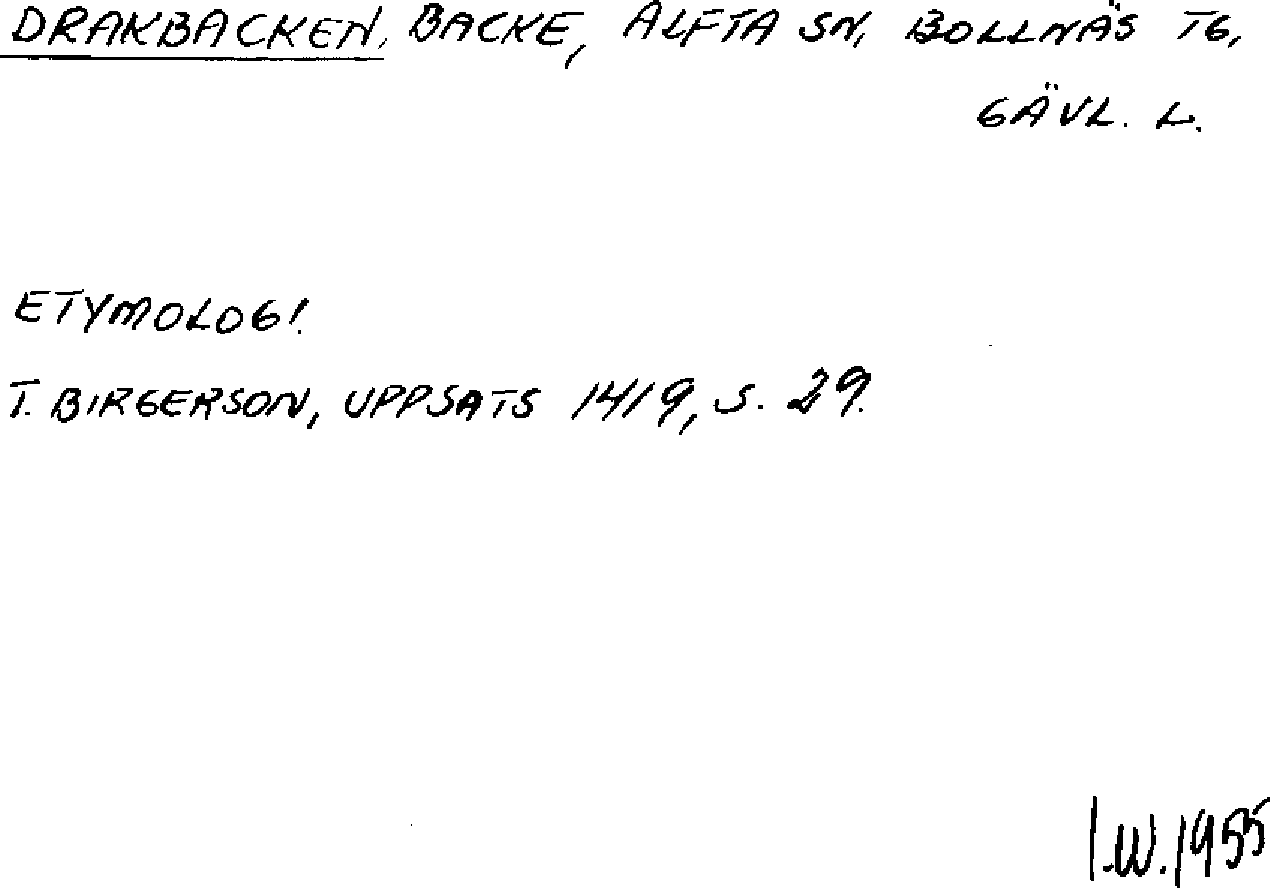 DRAKBACKEN, BACKE, ALFTA SN, BOLLNÄS TG,
GÄVL. L.
ETYMOLOGI.
T. BIRGERSON, UPPSATS 1419, S. 29.
I.W. 1955